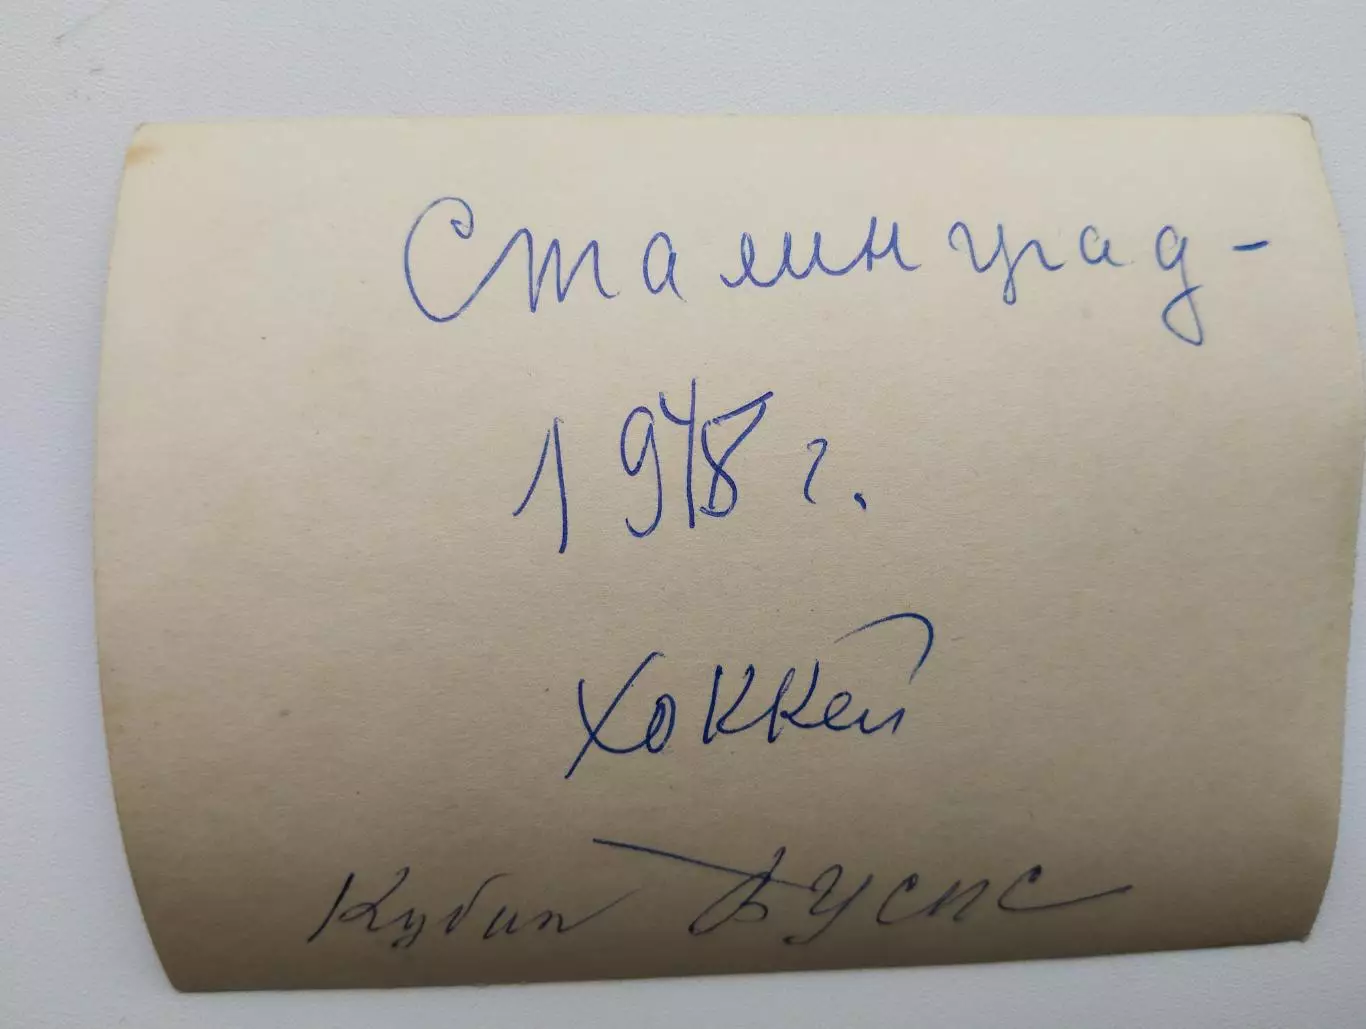 Сталинград -
1948 г.
Хоккей
Кубок ВЦСПС